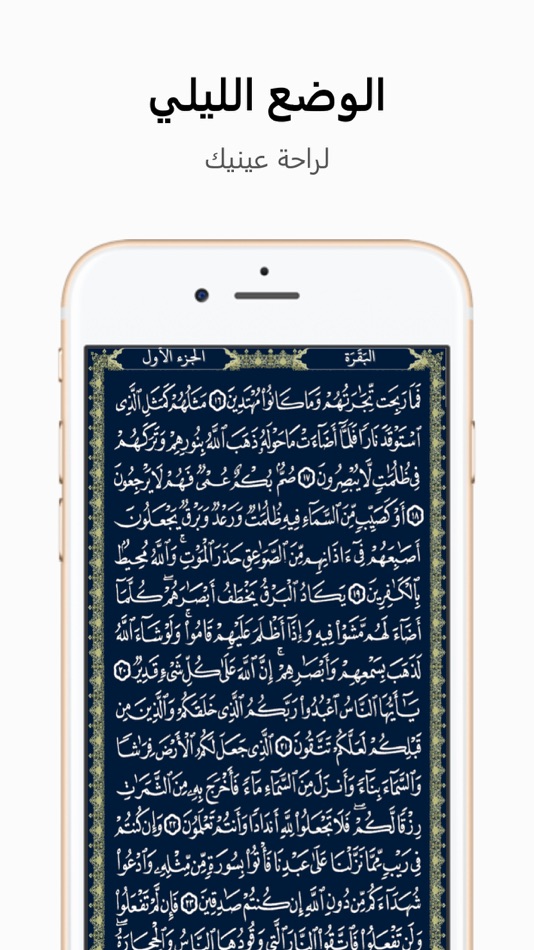 الوضع الليلي
لراحة عينيك
البَقَرَة
الجزء الأول
فَمَا رَبِحَت تِّجَٰرَتُهُمْ وَمَا كَانُوا۟ مُهْتَدِينَ ١٦ مَثَلُهُمْ كَمَثَلِ ٱلَّذِى
ٱسْتَوْقَدَ نَارًا فَلَمَّآ أَضَآءَتْ مَا حَوْلَهُۥ ذَهَبَ ٱللَّهُ بِنُورِهِمْ وَتَرَكَهُمْ
فِى ظُلُمَٰتٍ لَّا يُبْصِرُونَ ١٧ صُمٌّۢ بُكْمٌ عُمْىٌ فَهُمْ لَا يَرْجِعُونَ
١٨ أَوْ كَصَيِّبٍ مِّنَ ٱلسَّمَآءِ فِيهِ ظُلُمَٰتٌ وَرَعْدٌ وَبَرْقٌ يَجْعَلُونَ
أَصَٰبِعَهُمْ فِىٓ ءَاذَانِهِم مِّنَ ٱلصَّوَٰعِقِ حَذَرَ ٱلْمَوْتِ ۚ وَٱللَّهُ مُحِيطٌۢ
بِٱلْكَٰفِرِينَ ١٩ يَكَادُ ٱلْبَرْقُ يَخْطَفُ أَبْصَٰرَهُمْ ۖ كُلَّمَآ
أَضَآءَ لَهُم مَّشَوْا۟ فِيهِ وَإِذَآ أَظْلَمَ عَلَيْهِمْ قَامُوا۟ ۚ وَلَوْ شَآءَ ٱللَّهُ
لَذَهَبَ بِسَمْعِهِمْ وَأَبْصَٰرِهِمْ ۚ إِنَّ ٱللَّهَ عَلَىٰ كُلِّ شَىْءٍ قَدِيرٌ ٢٠
يَٰٓأَيُّهَا ٱلنَّاسُ ٱعْبُدُوا۟ رَبَّكُمُ ٱلَّذِى خَلَقَكُمْ وَٱلَّذِينَ مِن
قَبْلِكُمْ لَعَلَّكُمْ تَتَّقُونَ ٢١ ٱلَّذِى جَعَلَ لَكُمُ ٱلْأَرْضَ فِرَٰشًا
وَٱلسَّمَآءَ بِنَآءً وَأَنزَلَ مِنَ ٱلسَّمَآءِ مَآءً فَأَخْرَجَ بِهِۦ مِنَ ٱلثَّمَرَٰتِ
رِزْقًا لَّكُمْ ۖ فَلَا تَجْعَلُوا۟ لِلَّهِ أَندَادًا وَأَنتُمْ تَعْلَمُونَ ٢٢ وَإِن كُنتُمْ
فِى رَيْبٍ مِّمَّا نَزَّلْنَا عَلَىٰ عَبْدِنَا فَأْتُوا۟ بِسُورَةٍ مِّن مِّثْلِهِۦ وَٱدْعُوا۟
شُهَدَآءَكُم مِّن دُونِ ٱللَّهِ إِن كُنتُمْ صَٰدِقِينَ ٢٣ فَإِن لَّمْ تَفْعَلُوا۟
وَلَن تَفْعَلُوا۟ فَٱتَّقُوا۟ ٱلنَّارَ ٱلَّتِى وَقُودُهَا ٱلنَّاسُ وَٱلْحِجَارَةُ ۖ